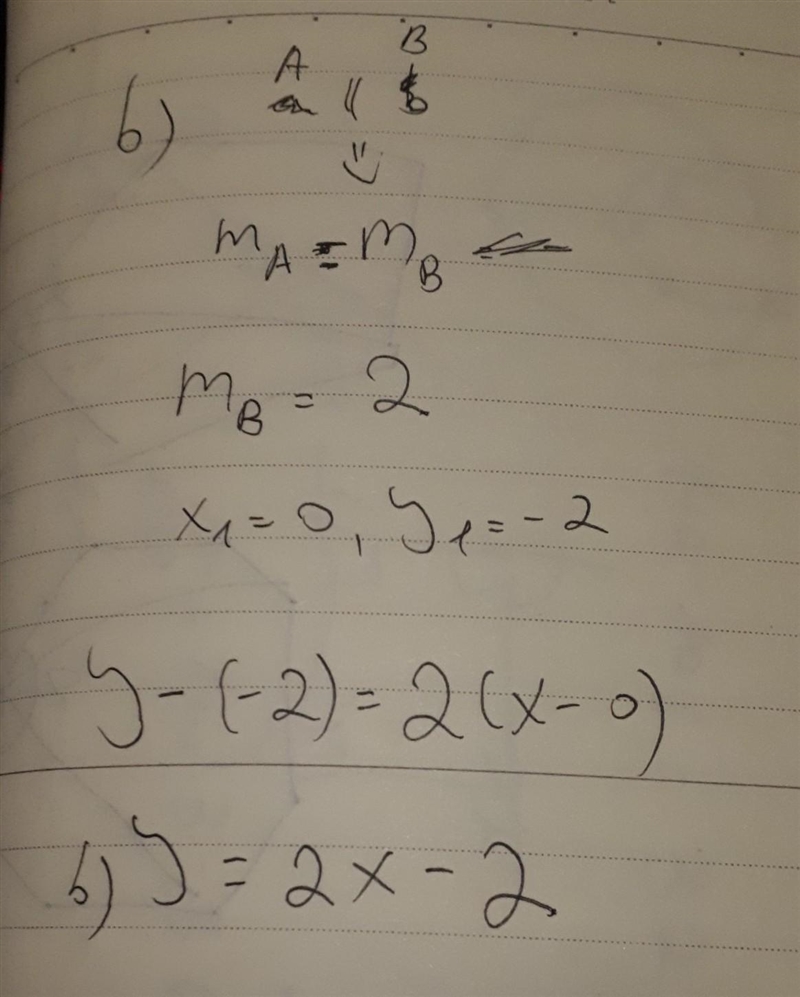 A B
b) ||
⇓
m_A = m_B
m_B = 2
x₁ = 0, y₁ = -2
y - (-2) = 2(x - 0)
b) y = 2x - 2